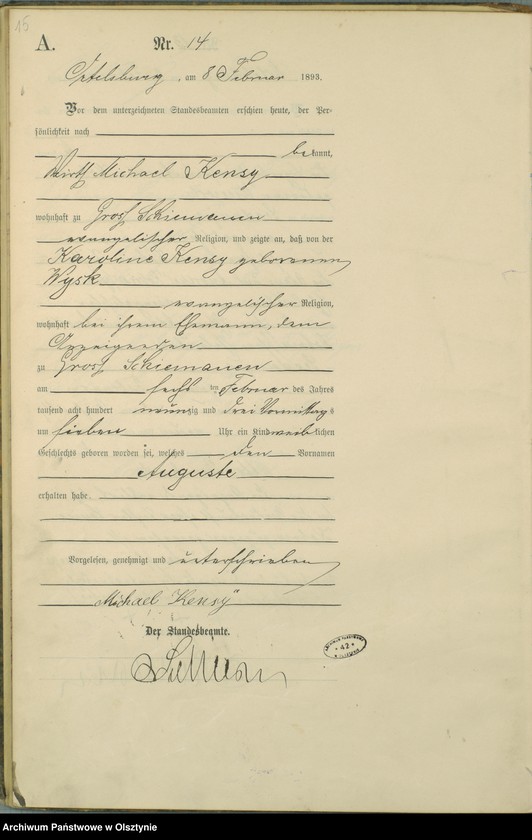 15
A. Nr. 14
Ortelsburg, am 8 Februar 1893.
Vor dem unterzeichneten Standesbeamten erschien heute, der Per-
sönlichkeit nach
bekannt,
Wirth Michael Kensy
wohnhaft zu Groß Schiemanen
evangelischer Religion, und zeigte an, daß von der
Karoline Kensy geborenen
Wysk
evangelischer Religion,
wohnhaft bei ihrem Ehemann, dem
Anzeigenden
zu Groß Schiemanen
am sechs ten Februar des Jahres
tausend acht hundert neunzig und drei Vormittags
um sieben Uhr ein Kind weiblichen
Geschlechts geboren worden sei, welches den Vornamen
Auguste
erhalten habe.
Vorgelesen, genehmigt und unterschrieben
Michael Kensy
Der Standesbeamte.
42
Archiwum Państwowe w Olsztynie